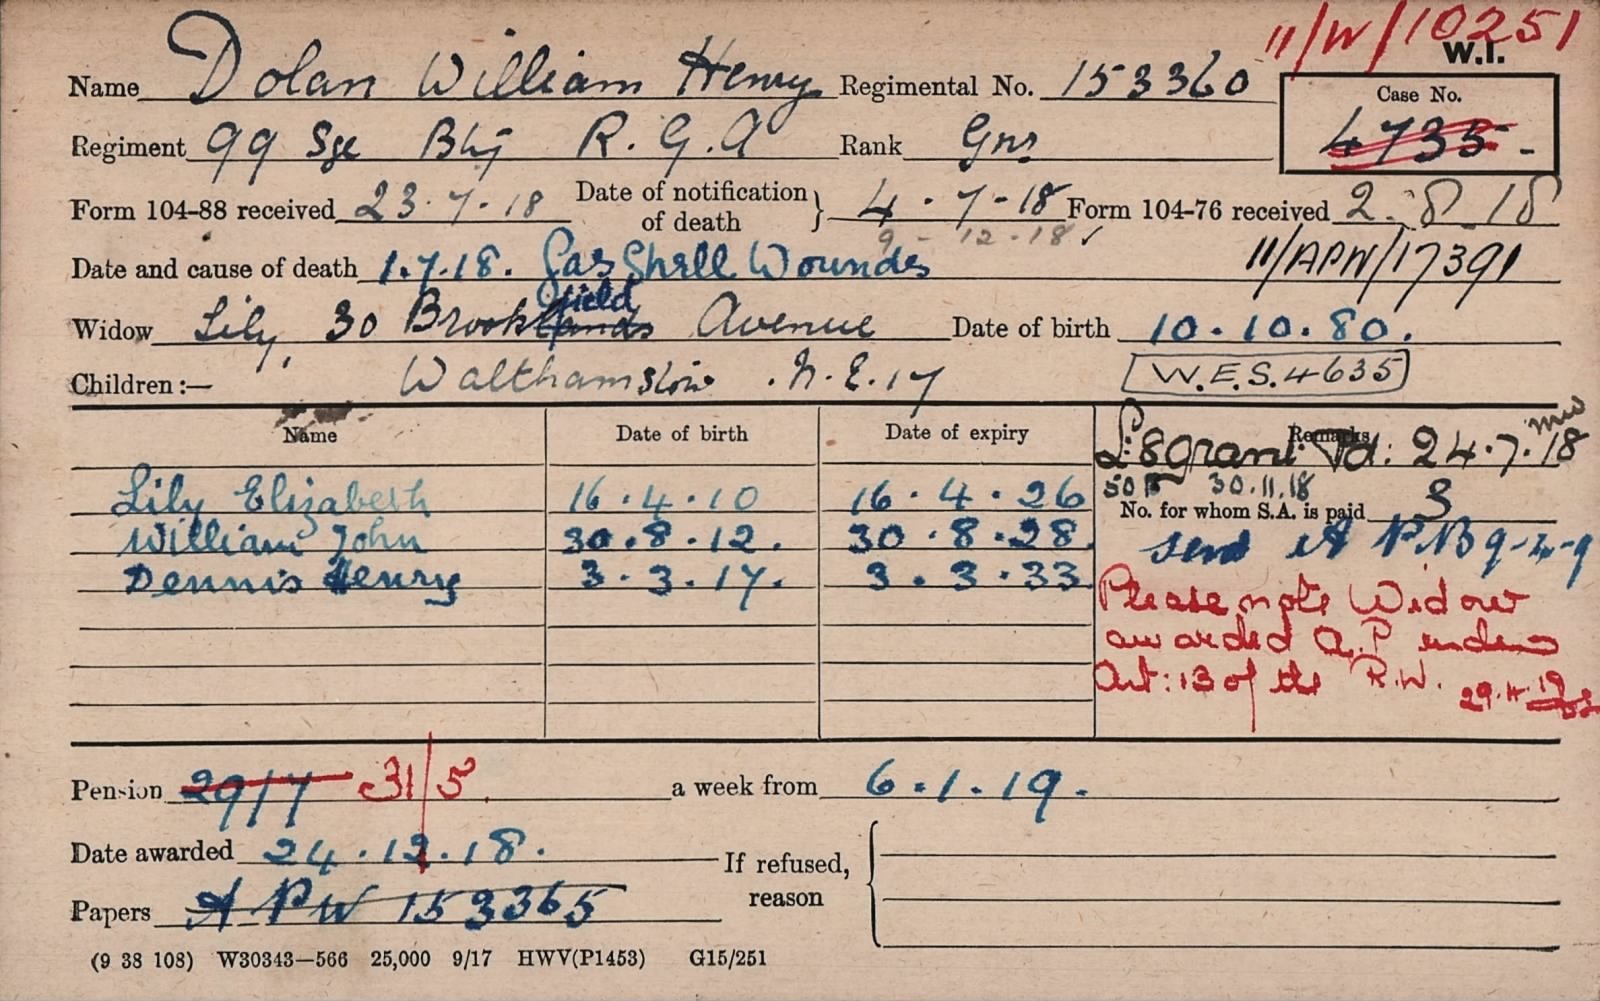 11/W/10251
W.I.
Name Dolan William Henry Regimental No. 153360
Case No.
4735 -
Regiment 99 Sge Bty R.G.A Rank Gnr
Form 104-88 received 23.7.18 Date of notification of death } 4.7-18 Form 104-76 received 2.8.18
9-12-18 ✓
Date and cause of death 1.7.18. Gas Shell Wounds 11/APW/17391
field
Widow Lily, 30 Brooklands Avenue Date of birth 10.10.80.
Children :— Walthamstow .N.E.17 W.E.S.4635
Name Date of birth Date of expiry Remarks
£8 grant Pd: 24.7.18
Lily Elizabeth 16.4.10 16.4.26
30.11.18
No. for whom S.A. is paid 3
William John 30.8.12. 30.8.28.
Dennis Henry 3.3.17. 3.3.33
Please note Widow
awarded A.P under
Art: 13 of the R.W. 29.4.19
Pension 29/7 31/5. a week from 6.1.19.
Date awarded 24.12.18. If refused, reason
Papers A P W 153365
(9 38 108) W30343—566 25,000 9/17 HWV(P1453) G15/251